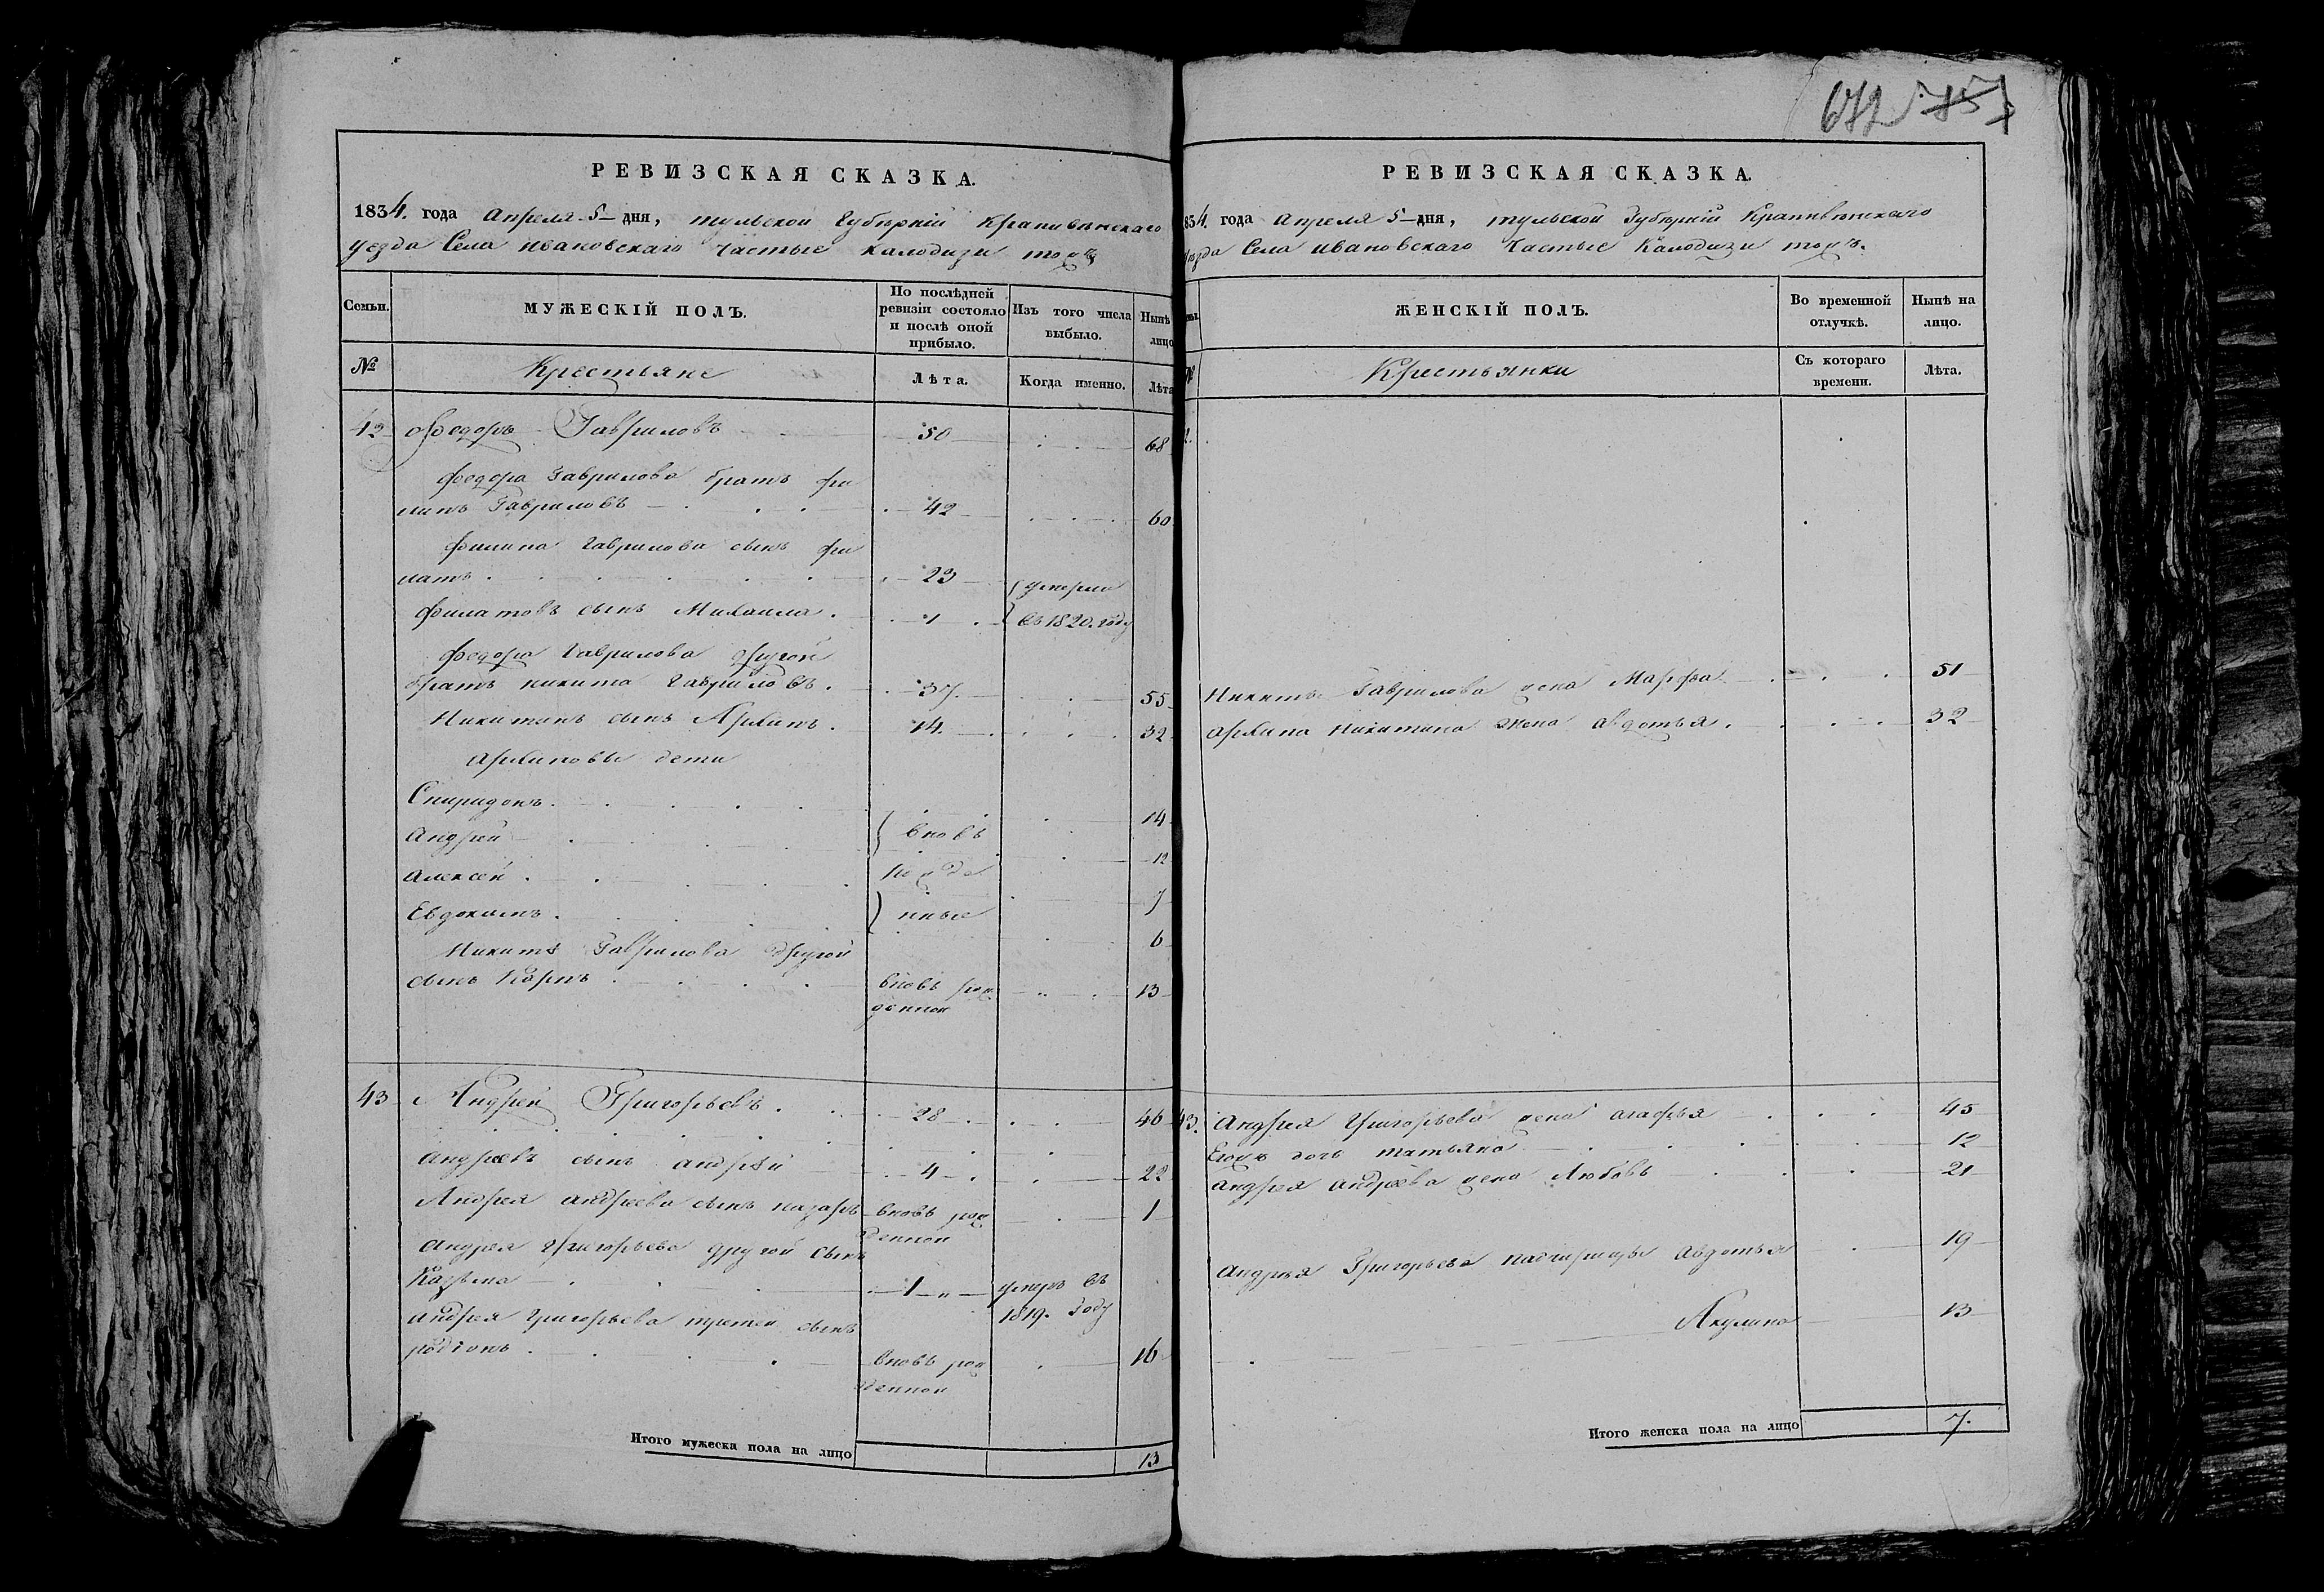 672 757
РЕВИЗСКАЯ СКАЗКА.
1834. года Апреля 5 дня, тульской Губернiй Крапивенскаго
уезда Села Ивановскаго Частые Калодизи тожъ
Семьи.
МУЖЕСКIЙ ПОЛЪ.
По послѣдней
ревизiи состояло
и послѣ оной
прибыло.
Изъ того числа
выбыло.
Нынѣ
лицо
№
Крестьяне
Лѣта.
Когда именно.
Лѣта
42 Федоръ Гавриловъ 50 68
Федора Гаврилова братъ фи
липъ Гавриловъ 42 60
Филипа Гаврилова сынъ фи
латъ 23 умерли
Филатовъ сынъ Михаила 1 въ 1820. году
Федора Гаврилова другой
братъ никита Гавриловъ 37 55
Никитинъ сынъ Архипъ 14. 32
Архиповы дети
Спиридонъ 14
Андрей вновь 12
Алексей рожде 7
Евдокимъ нные 6
Никиты Гаврилова другой
сынъ Карпъ вновь рож 13
денной
43 Андрей Григорьевъ 28 46
Андреевъ сынъ андрей 4 22
Андрея андреева сынъ назаръ вновь рож 1
денной
Андрея Григорьева другой сынъ
Козьма 1 умеръ въ
1819. году
Андрея Григорьева третей сынъ
родiонъ вновь рож 16
денной
Итого мужеска пола на лицо 13
РЕВИЗСКАЯ СКАЗКА.
834. года Апреля 5 дня, тульской Губернiй Крапивенскаго
уезда Села Ивановскаго Частые Калодизи тожъ.
ЖЕНСКIЙ ПОЛЪ.
Во временной
отлучкѣ.
Нынѣ на
лицо.
№
Крестьянки
Съ котораго
времени.
Лѣта.
2.
Никиты Гаврилова жена Марфа 51
Архипа Никитина жена авдотья 32
43. Андрея Григорьева жена агафья 45
Егожъ дочь татьяна 12
Андрея андреева жена Любовь 21
Андрея Григорьева падчирицы Авдотья 19
Акулина 13
Итого женска пола на лицо 7.